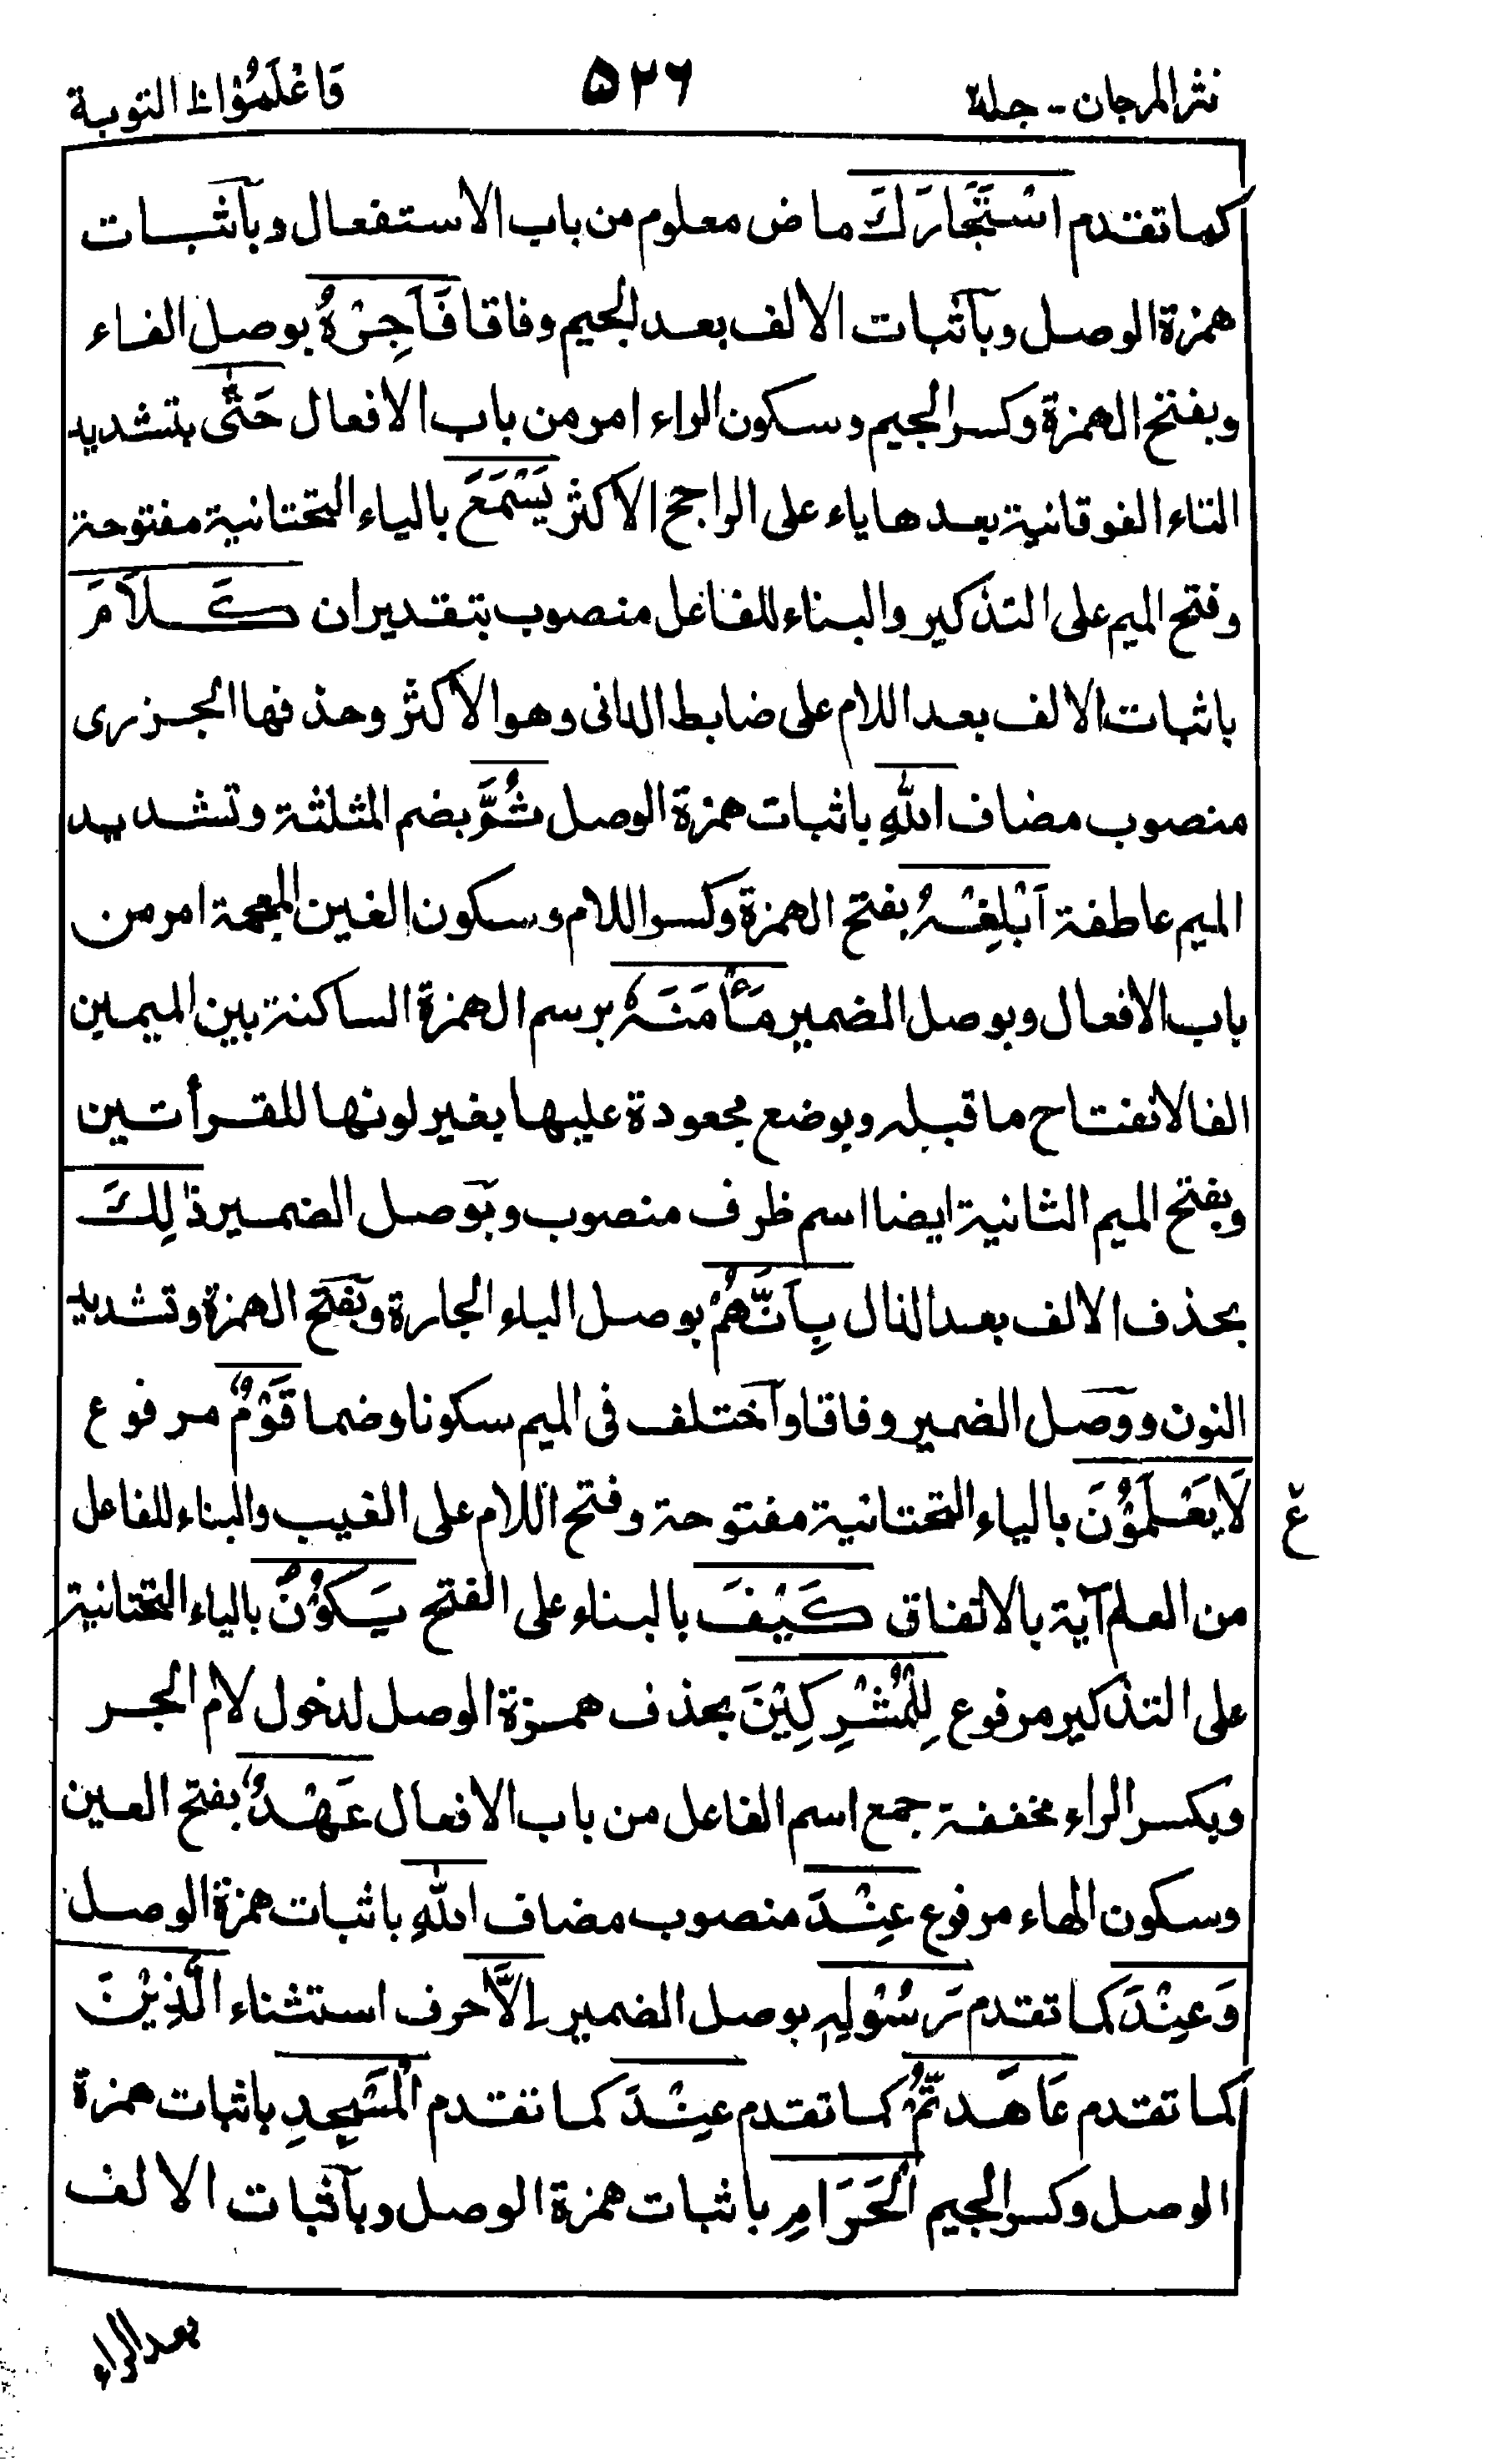 نثر المرجان - جلد ٥٢٦ وَاعْلَمُوْا التوبة
كما تقدم اسْتَجَارَكَ ماض معلوم من باب الاستفعال وبآثبات
همزة الوصل وبآثبات الالف بعد الجيم وفاقا فَاَجِرْهُ بوصل الفاء
وبفتح الهمزة وكسر الجيم وسكون الراء امر من باب الافعال حَتّٰى بتشديد
التاء الفوقانية بعدها ياء على الراجح الاكثر يَسْمَعَ بالياء التحتانية مفتوحة
وفتح الميم على التذكير والبناء للفاعل منصوب بتقدير ان كَلَامَ
باثبات الالف بعد اللام على ضابط الدانى وهو الاكثر وحذفها الجزرى
منصوب مضاف اللّٰهِ باثبات همزة الوصل ثُمَّ بضم المثلثة وتشديد
الميم عاطفة اَبْلِغْهُ بفتح الهمزة وكسر اللام وسكون الغين المعجمة امر من
باب الافعال وبوصل الضمير مَأْمَنَهٗ برسم الهمزة الساكنة بين الميمين
الفا لانفتاح ما قبله وبوضع مجعودة عليها بغير لونها للقرأتين
وبفتح الميم الثانية ايضا اسم ظرف منصوب وبوصل الضمير ذٰلِكَ
بحذف الالف بعد الذال بِاَنَّهُمْ بوصل الباء الجارة وبفتح الهمزة وتشديد
النون ووصل الضمير وفاقا وآختلف فى الميم سكونا وضما قَوْمٌ مرفوع
لَا يَعْلَمُوْنَ بالياء التحتانية مفتوحة وفتح اللام على الغيب والبناء للفاعل
ع
من العلم آية بالاتفاق كَيْفَ بالبناء على الفتح يَكُوْنُ بالياء التحتانية
على التذكير مرفوع لِلْمُشْرِكِيْنَ بحذف همزة الوصل لدخول لام الجر
وبكسر الراء مخففة جمع اسم الفاعل من باب الافعال عَهْدٌ بفتح العين
وسكون الهاء مرفوع عِنْدَ منصوب مضاف اللّٰهِ باثبات همزة الوصل
وَعِنْدَ كما تقدم رَسُوْلِهٖ بوصل الضمير اِلَّا حرف استثناء الَّذِيْنَ
كما تقدم عَاهَدتُّمْ كما تقدم عِنْدَ كما تقدم الْمَسْجِدِ باثبات همزة
الوصل وكسر الجيم الْحَرَامِ باثبات همزة الوصل وبآثبات الالف
بعد الراء